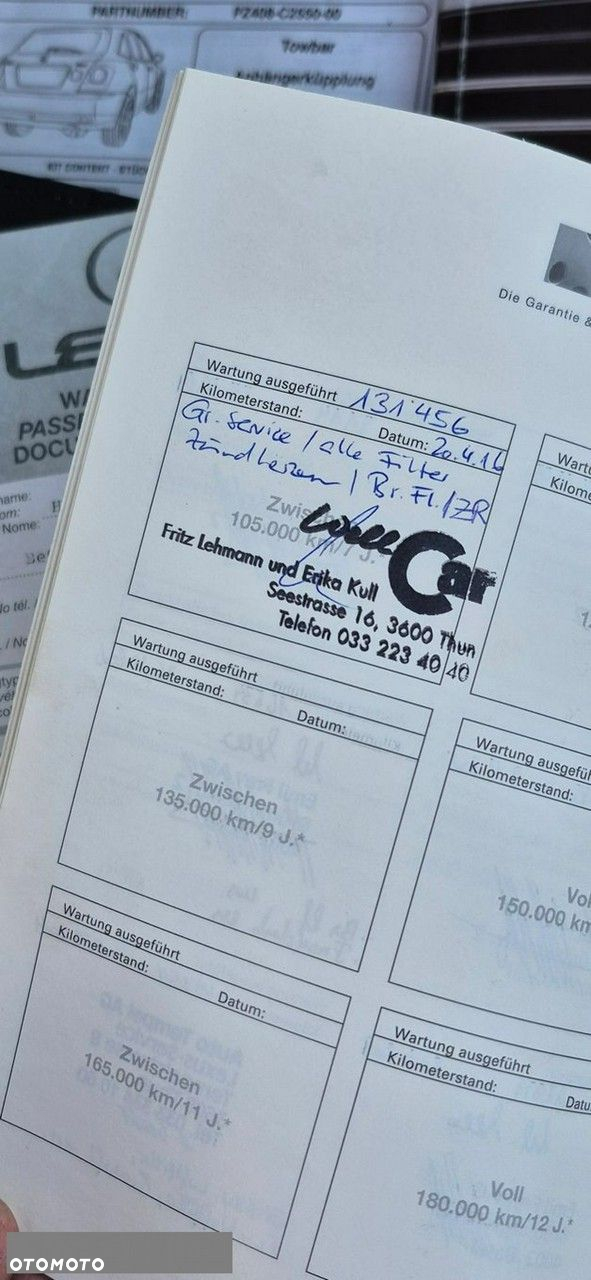 PARTNUMBER: PZ408-C2550-00
Towbar
Anhängerkupplung
KIT CONTENT - STÜC
Die Garantie &
LE
WA
PASSE
DOCU
Wartung ausgeführt 131'456
Kilometerstand: Datum: 20.4.16
Gr. Service / alle Filter
Zündkerzen / Br. Fl. / ZR
Zwisch
105.000 km/7 J.*
Well Car
Fritz Lehmann und Erika Kull
Seestrasse 16, 3600 Thun
Telefon 033 223 40 40
Wartu
Kilome
Wartung ausgeführt
Kilometerstand: Datum:
Zwischen
135.000 km/9 J.*
Wartung ausgefüh
Kilometerstand:
Vol
150.000 km
Wartung ausgeführt
Kilometerstand: Datum:
Zwischen
165.000 km/11 J.*
Wartung ausgeführt
Kilometerstand: Datu
Voll
180.000 km/12 J.*
name:
om:
Nome:
lo tél.
OTOMOTO